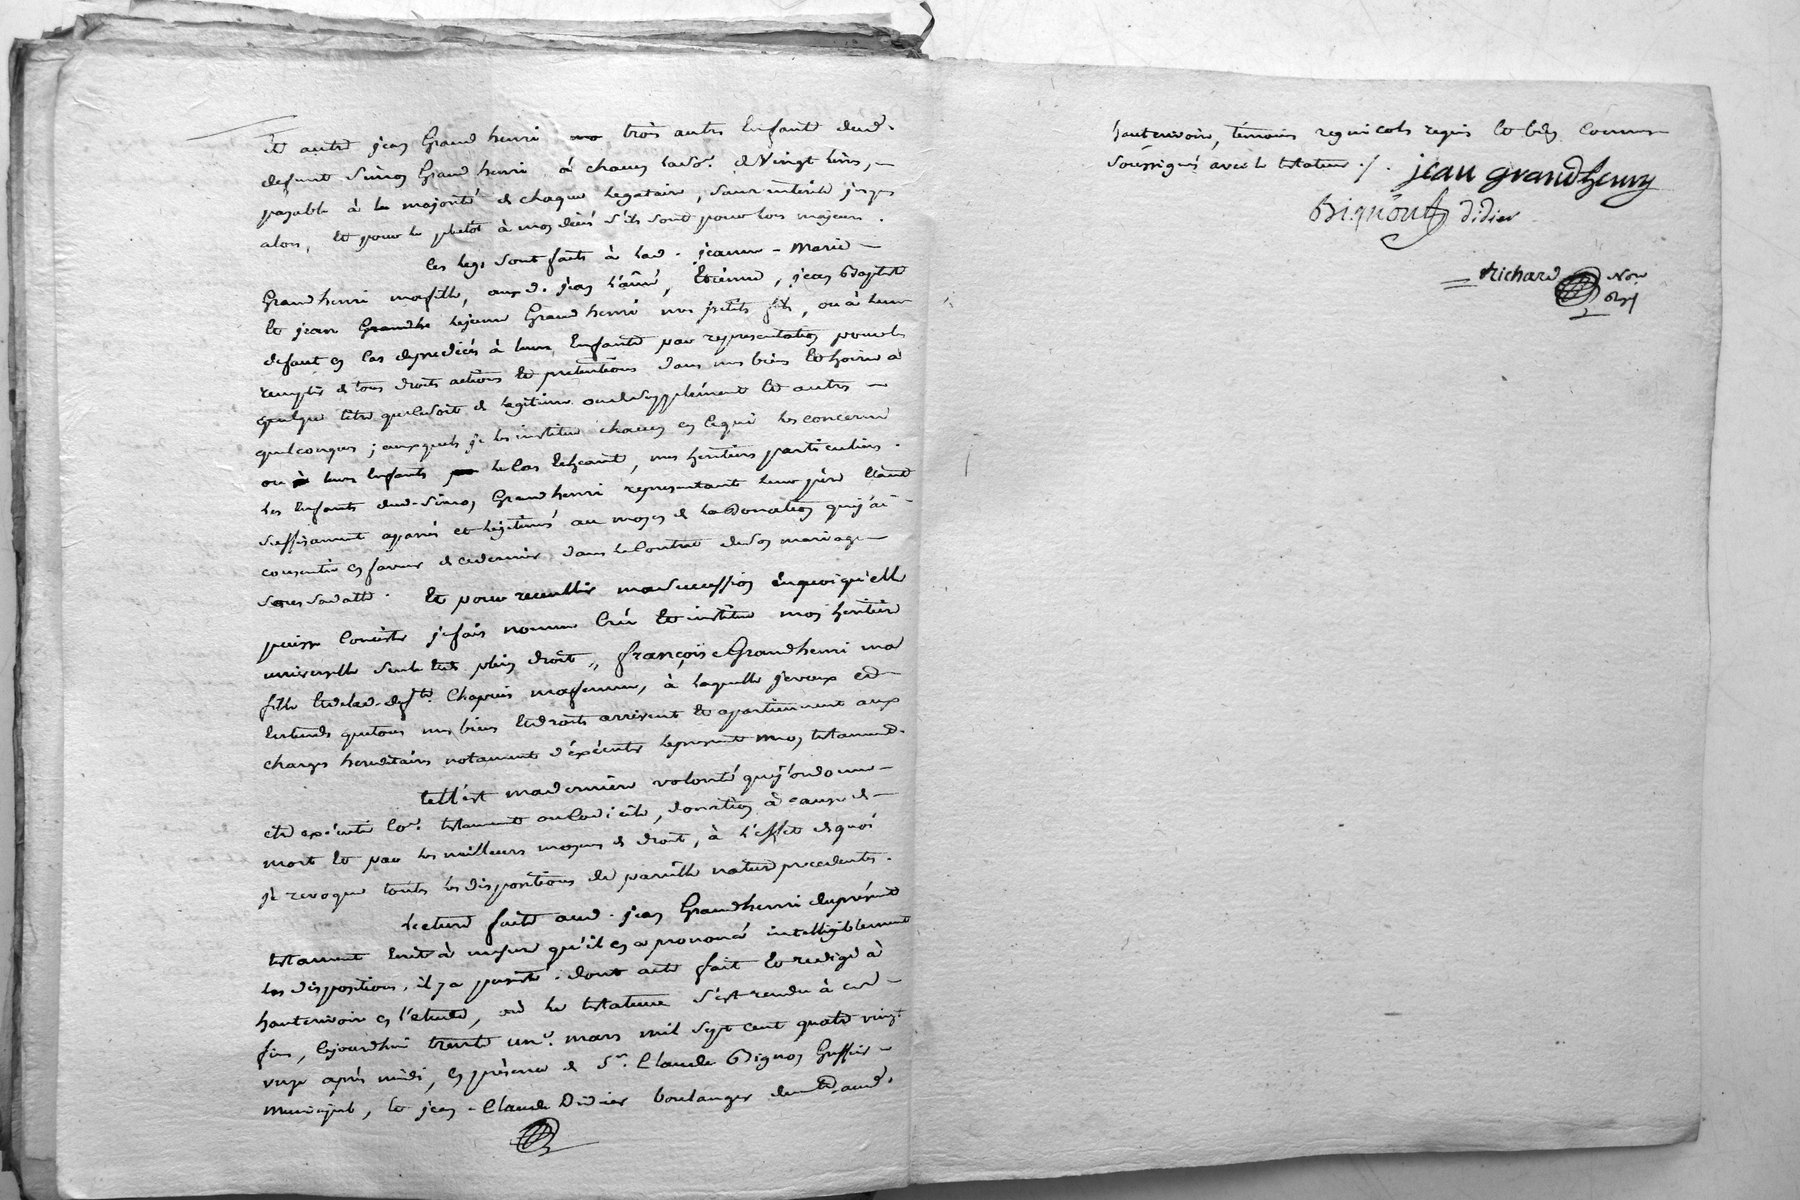 et autre jean Grand henri trois autres Enfants dud.
defunt Simon Grand henri, à chacun de vingt livres,
payable à la majorité de chaque legataire, sans intérêt jusques
alors, et pour le plutôt à mon décés s'ils sont pour lors majeurs.
Ces legs sont faits à lad. jeanne-Marie
Grandhenri ma fille, auxd. jean l'aîné, Etienne, jean Baptiste
et jean lejeune Grandhenri mes petits fils, ou à leur
defaut en cas de prédécés à leurs Enfants par representation pour les
remplir de tous droits actions et pretentions dans mes biens et hoirie à
quelque titre que ce soit de legitime ou de supplément et autres
quelconques; auxquels je les institue chacun en ce qui les concerne
ou à leurs Enfants le cas échéant, mes heritiers particuliers.
Les Enfants dud. Simon Grandhenri representant leur père étant
suffisament apanés et légitimés au moyen de la Donation que j'ai
consentie en faveur de ce dernier dans le Contrat de son mariage
sous sa datte. Et pour recueillir ma succession en quoi qu'elle
puisse consister je fais nomme Crée et institue mon heritière
universelle seule et de plein droit, françoise Grandhenri ma
fille et de lad. defte. Chapuis ma femme, à laquelle je veux et
Entends que tous mes biens et droits arrivent et apartiennent aux
charges hereditaires notament d'exécuter le présent mon testament.
tell'est ma dernière volonté que j'ordonne
être exécutée testament ou Codicile, donation à cause de
mort et par les meilleurs moyens de droit, à l'effet de quoi
je revoque toutes les dispositions de pareille nature precedentes.
Lecture faite aud. jean Grandhenri du présent
testament Ecrit à mesure qu'il en a prononcé intelligiblement
les dispositions, il y a persisté. dont acte fait et redigé à
hauterivoire en l'etude, où le testateur s'est rendu à cet
fin, cejourdhui trente un mars mil sept cent quatre vingt
onze après midi, en présence de Sr. Claude Bignon Greffier
Municipal, et jean-Claude Didier boulanger aud.
hauterivoire, témoins regnicols requis et bien Connus
Soussignés avec le testateur ./. jean grandhenry
Didier
Richard Nore